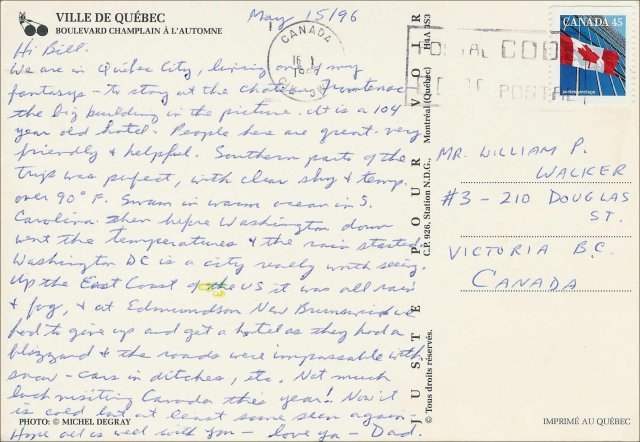 VILLE DE QUÉBEC
BOULEVARD CHAMPLAIN À L'AUTOMNE
May 15/96
Hi Bill.
We are in Québec City, living out my
fantasy - to stay at the chateau frontenac
the big building in the picture. It is a 104
year old hotel. People here are great - very
friendly & helpful. Southern parts of the
trip was perfect, with clear sky & temp.
over 90° F. Swam in warm ocean in S.
Carolina then before Washington down
went the temperatures & the rain started.
Washington DC is a city really worth seeing.
Up the East Coast of the US it was all rain
& fog, & at Edmundson New Brunswick we
had to give up and get a hotel as they had a
blizzard & the roads were impassable with
snow - cars in ditches, etc. Not much
luck visiting Canada this year! Now it
is cold but at least some seen again -
Hope all is well with you - love ya - Dad.
PHOTO: © MICHEL DEGRAY
JUSTE POUR VOIR
© Tous droits réservés.
C.P. 928, Station N.D.G., Montréal (Québec) H4A 3S3
CANADA
POSTAL CODE
POSTAL
CANADA 45
postes/postage
MR. WILLIAM P.
WALKER
#3 - 210 DOUGLAS
ST.
VICTORIA B.C.
CANADA
IMPRIMÉ AU QUÉBEC